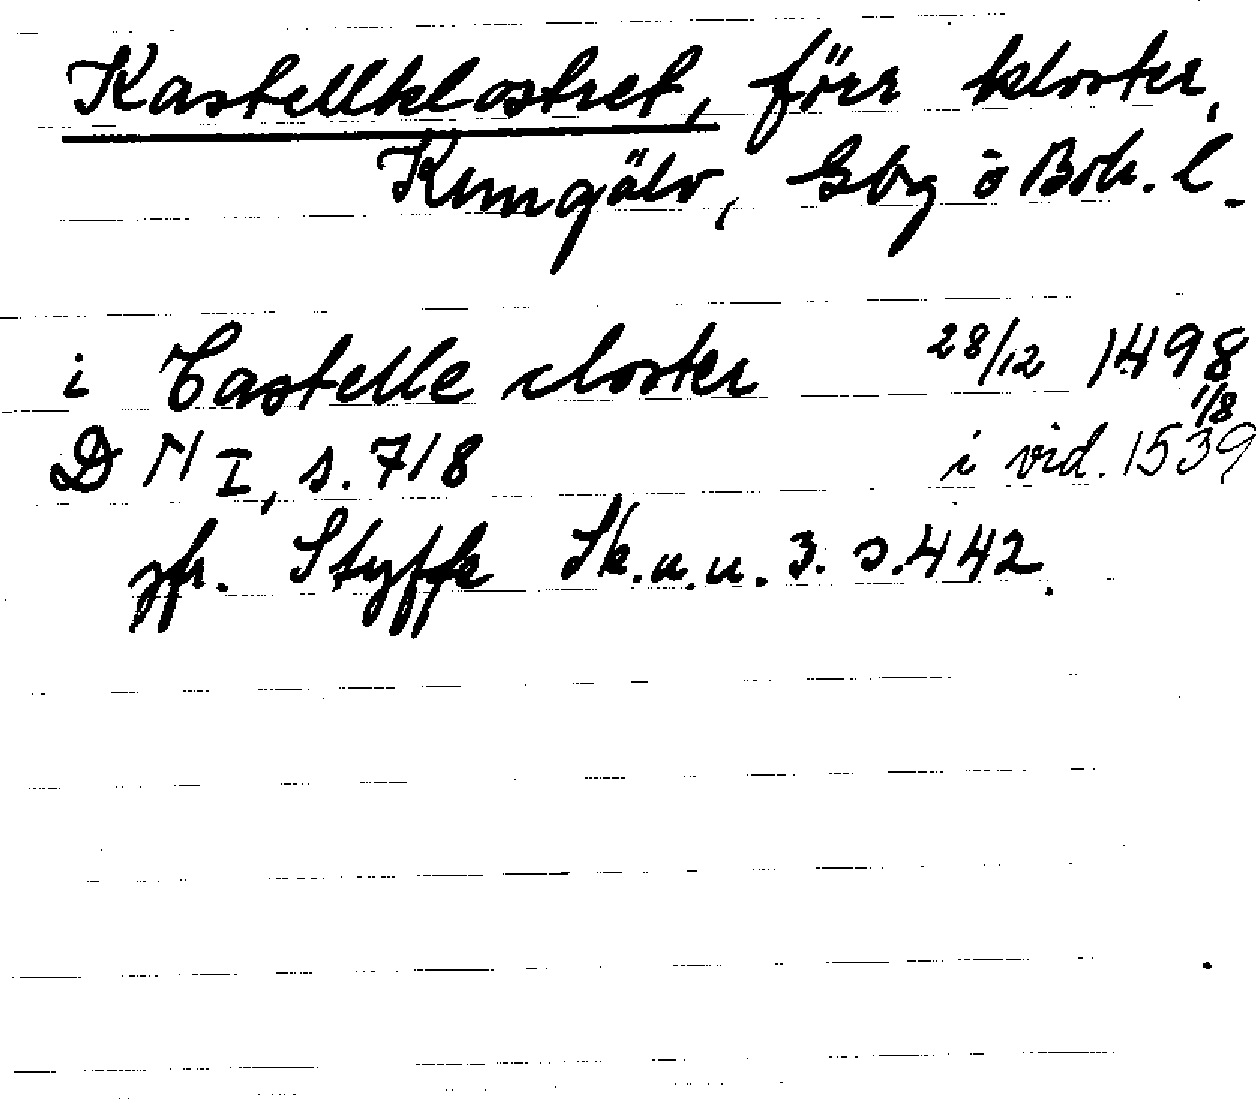 Kastellklostret, förr kloster,
Kungälv, Gbg o Boh. l.
i Castelle closter 28/12 1498
1/8
D N I, s. 718 i vid. 1539
jfr. Styffe Sk.u.u. 3. s. 442.